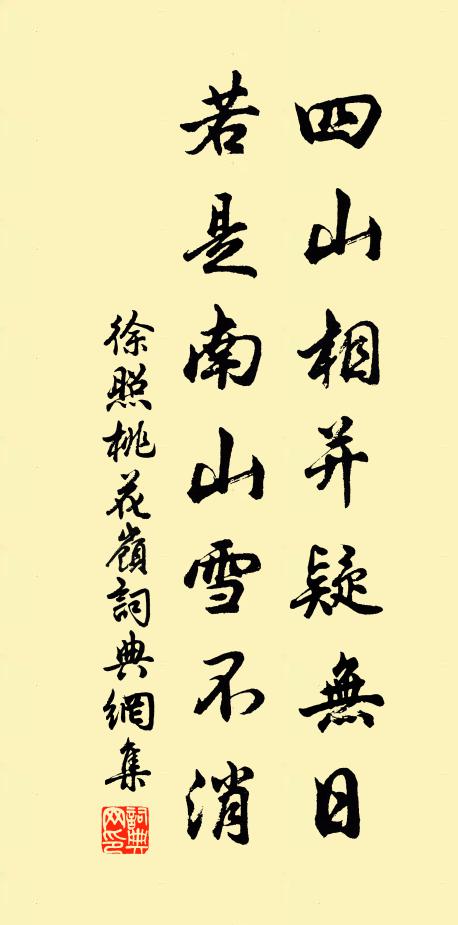 四山相并疑無日
若是南山雪不消
徐照桃花嶺詞典網集
詞典網印